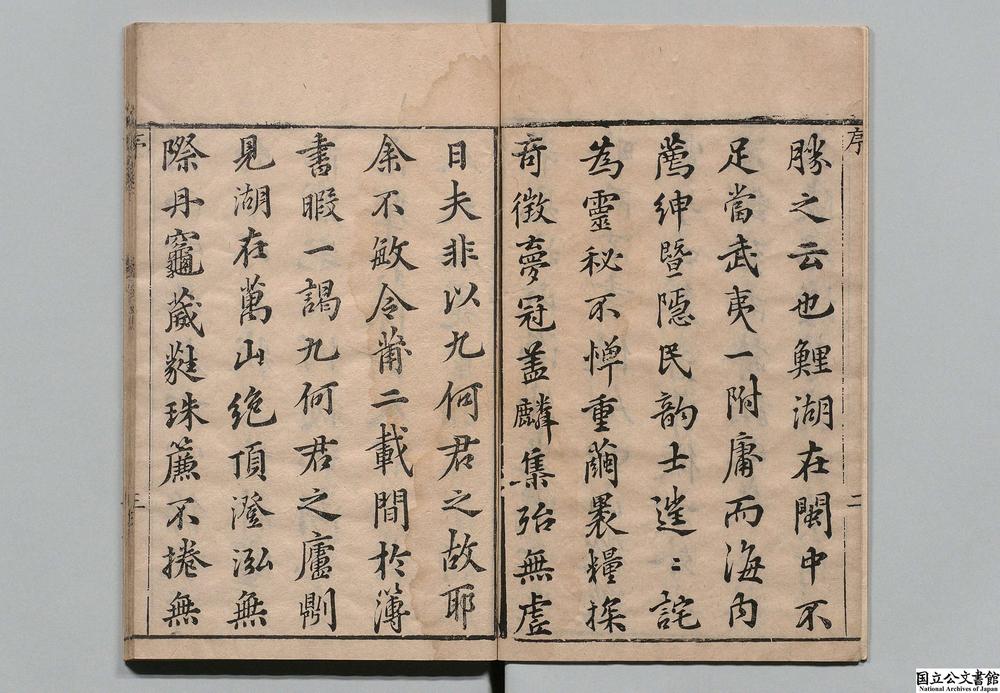 序
勝之云也鯉湖在閩中不
足當武夷一附庸而海内
薦紳暨隱民韵士逞〻詫
為靈秘不憚重繭裹糧探
奇徵夢冠盖麟集殆無虗
二
日夫非以九何君之故耶
余不敏令莆二載間於簿
書暇一謁九何君之廬則
見湖在萬山絶頂澄泓無
際丹竈葳蕤珠簾不捲無
国立公文書館
National Archives of Japan